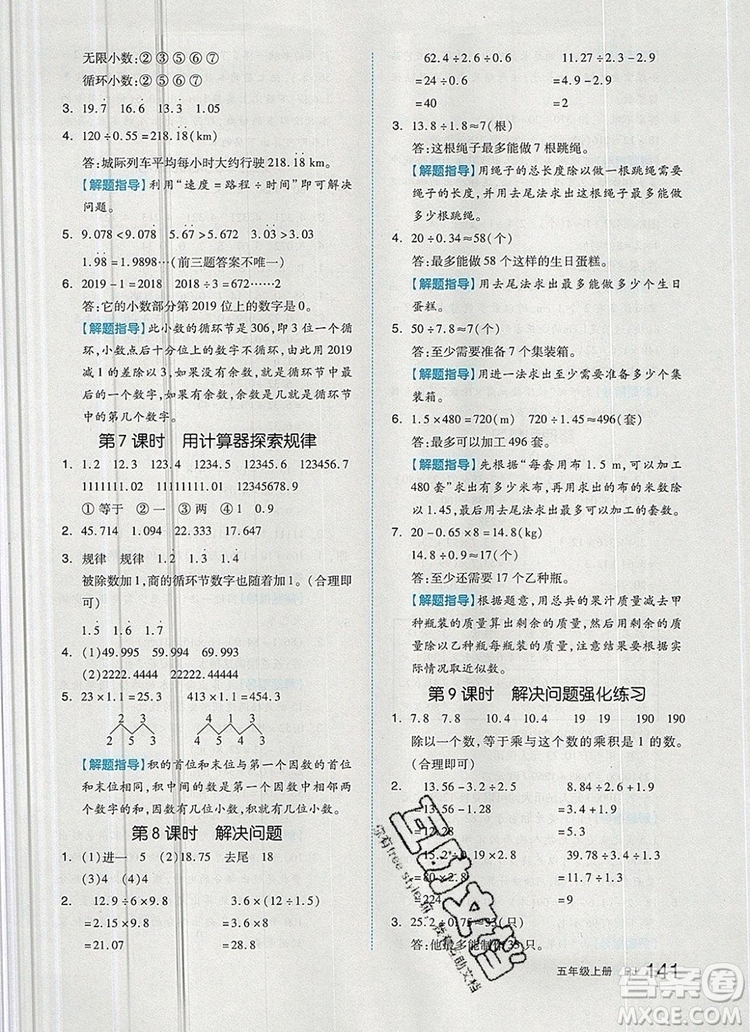 无限小数:②③⑤⑥⑦
循环小数:②⑤⑥⑦
3. 19.7̇ 16.6̇ 13.3̇ 1.05
4. 120÷0.55=218.1̇8̇(km)
答:城际列车平均每小时大约行驶 218.1̇8̇ km。
【解题指导】利用“速度=路程÷时间”即可解决
问题。
6. 2019-1=2018 2018÷3=672……2
答:它的小数部分第 2019 位上的数字是 0。
【解题指导】此小数的循环节是 306,即 3 位一个循
环,小数点后十分位上的数字不循环,因此要用 2019
减 1 的差除以 3,如果没有余数,就是循环节中的最
后一个数字,如果有余数,余数是几就是循环节中
的第几个数字。
第 7 课时 用计算器探索规律
1. 1.2 12.3 123.4 1234.5 12345.6 123456.7
11111111.02 12345678.9
①等于 ②一 ③两 ④1 0.9
2. 45.714 1.094 22.333 17.647
3. 规律 规律 1.2̇ 1.3̇ 1.4̇
被除数加 1,商的循环节数字也随着加 1。(合理即
可)
1.5̇ 1.6̇ 1.7̇
4. (1)49.995 59.994 69.993
(2)2222.4444 22222.44444
5. 23×1.1=25.3 243×1.1=267.3
2 3 2 4 3
2 5 3 2 6 7 3
【解题指导】积的首位和末位与第一个因数的首位
和末位相同,积中间的数是第一个因数中相邻两个
数字的和,第一个因数有几位小数,积就有几位小数。
第 8 课时 解决问题
1. (1)进一 5 (2)18.75 去尾 18
(3)4 (4)4
2. 12.9÷6×9.8 3.6×(12÷2.5)
=2.15×9.8 =3.6×4.8
=21.07 =17.28
62.4÷2.6÷0.6 11.27÷2.3-2.9
=24÷0.6 =4.9-2.9
=40 =2
3. 13.8÷1.9≈7(根)
答:这根绳子最多能做 7 根跳绳。
【解题指导】用绳子的总长度除以做一根跳绳需要
绳子的长度,并用去尾法求出这根绳子最多能做
多少根跳绳。
4. 20÷0.34≈58(个)
答:最多能做 58 个这样的生日蛋糕。
【解题指导】用去尾法求出最多能做多少个生日
蛋糕。
5. 50÷7.8≈7(个)
答:至少需要准备 7 个集装箱。
【解题指导】用进一法求出至少需要准备多少个集
装箱。
6. 1.5×480=720(m) 720÷1.45≈496(套)
答:现在最多可以加工 496 套。
【解题指导】先根据“每套用布 1.5 m,可以加工
480 套”求出有多少米布,然后用布的总米数除
以 1.45,最后用去尾法取整数。
7. 20-0.65×8=14.8(kg)
14.8÷0.9≈17(个)
答:至少需要 17 个乙种瓶。
【解题指导】根据题意,用总共的果汁质量减去甲
种瓶装的质量算出剩余的质量,然后用剩余的质量
除以乙种瓶每瓶装的质量算出得数,最后根据实际
情况取近似数。
第 9 课时 解决问题强化练习
1. 7.8 7.8 10.4 10.4 19 19 190 190
除以一个数,等于乘与这个数的乘积是 1 的数。
(合理即可)
2. 13.56-3.2÷2.5 8.84÷2.6×1.2
=13.56-1.28 =3.4×1.2
=12.28 =4.08
39.78÷(1.7×2.6)
=39.78÷4.42
=224 =9
答:他最多能制作 33 只。
互助文档
五年级上册 141
答案圈
MXQE.COM